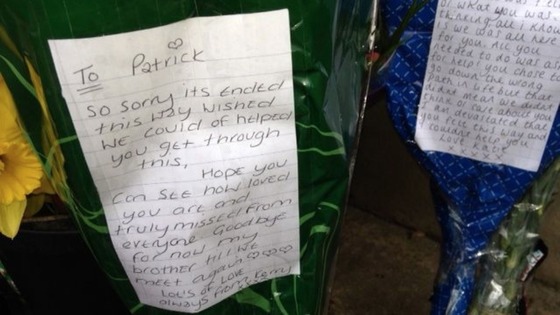 To Patrick
So sorry its ended
this way wished
we could of helped
you get through
this,
Hope you
can see how loved
you are and
truly missed from
everyone Goodbye
for now my
brother till we
meet again
Lots of love
always from Kerry
what you was
thinking all I know
is we was all here
for you. All you
needed to do was ask
for help you chose
to down the wrong
path in life but that
didnt mean we didnt
think or care about you
devastated that
you felt this way and
couldnt help you
Love Kate